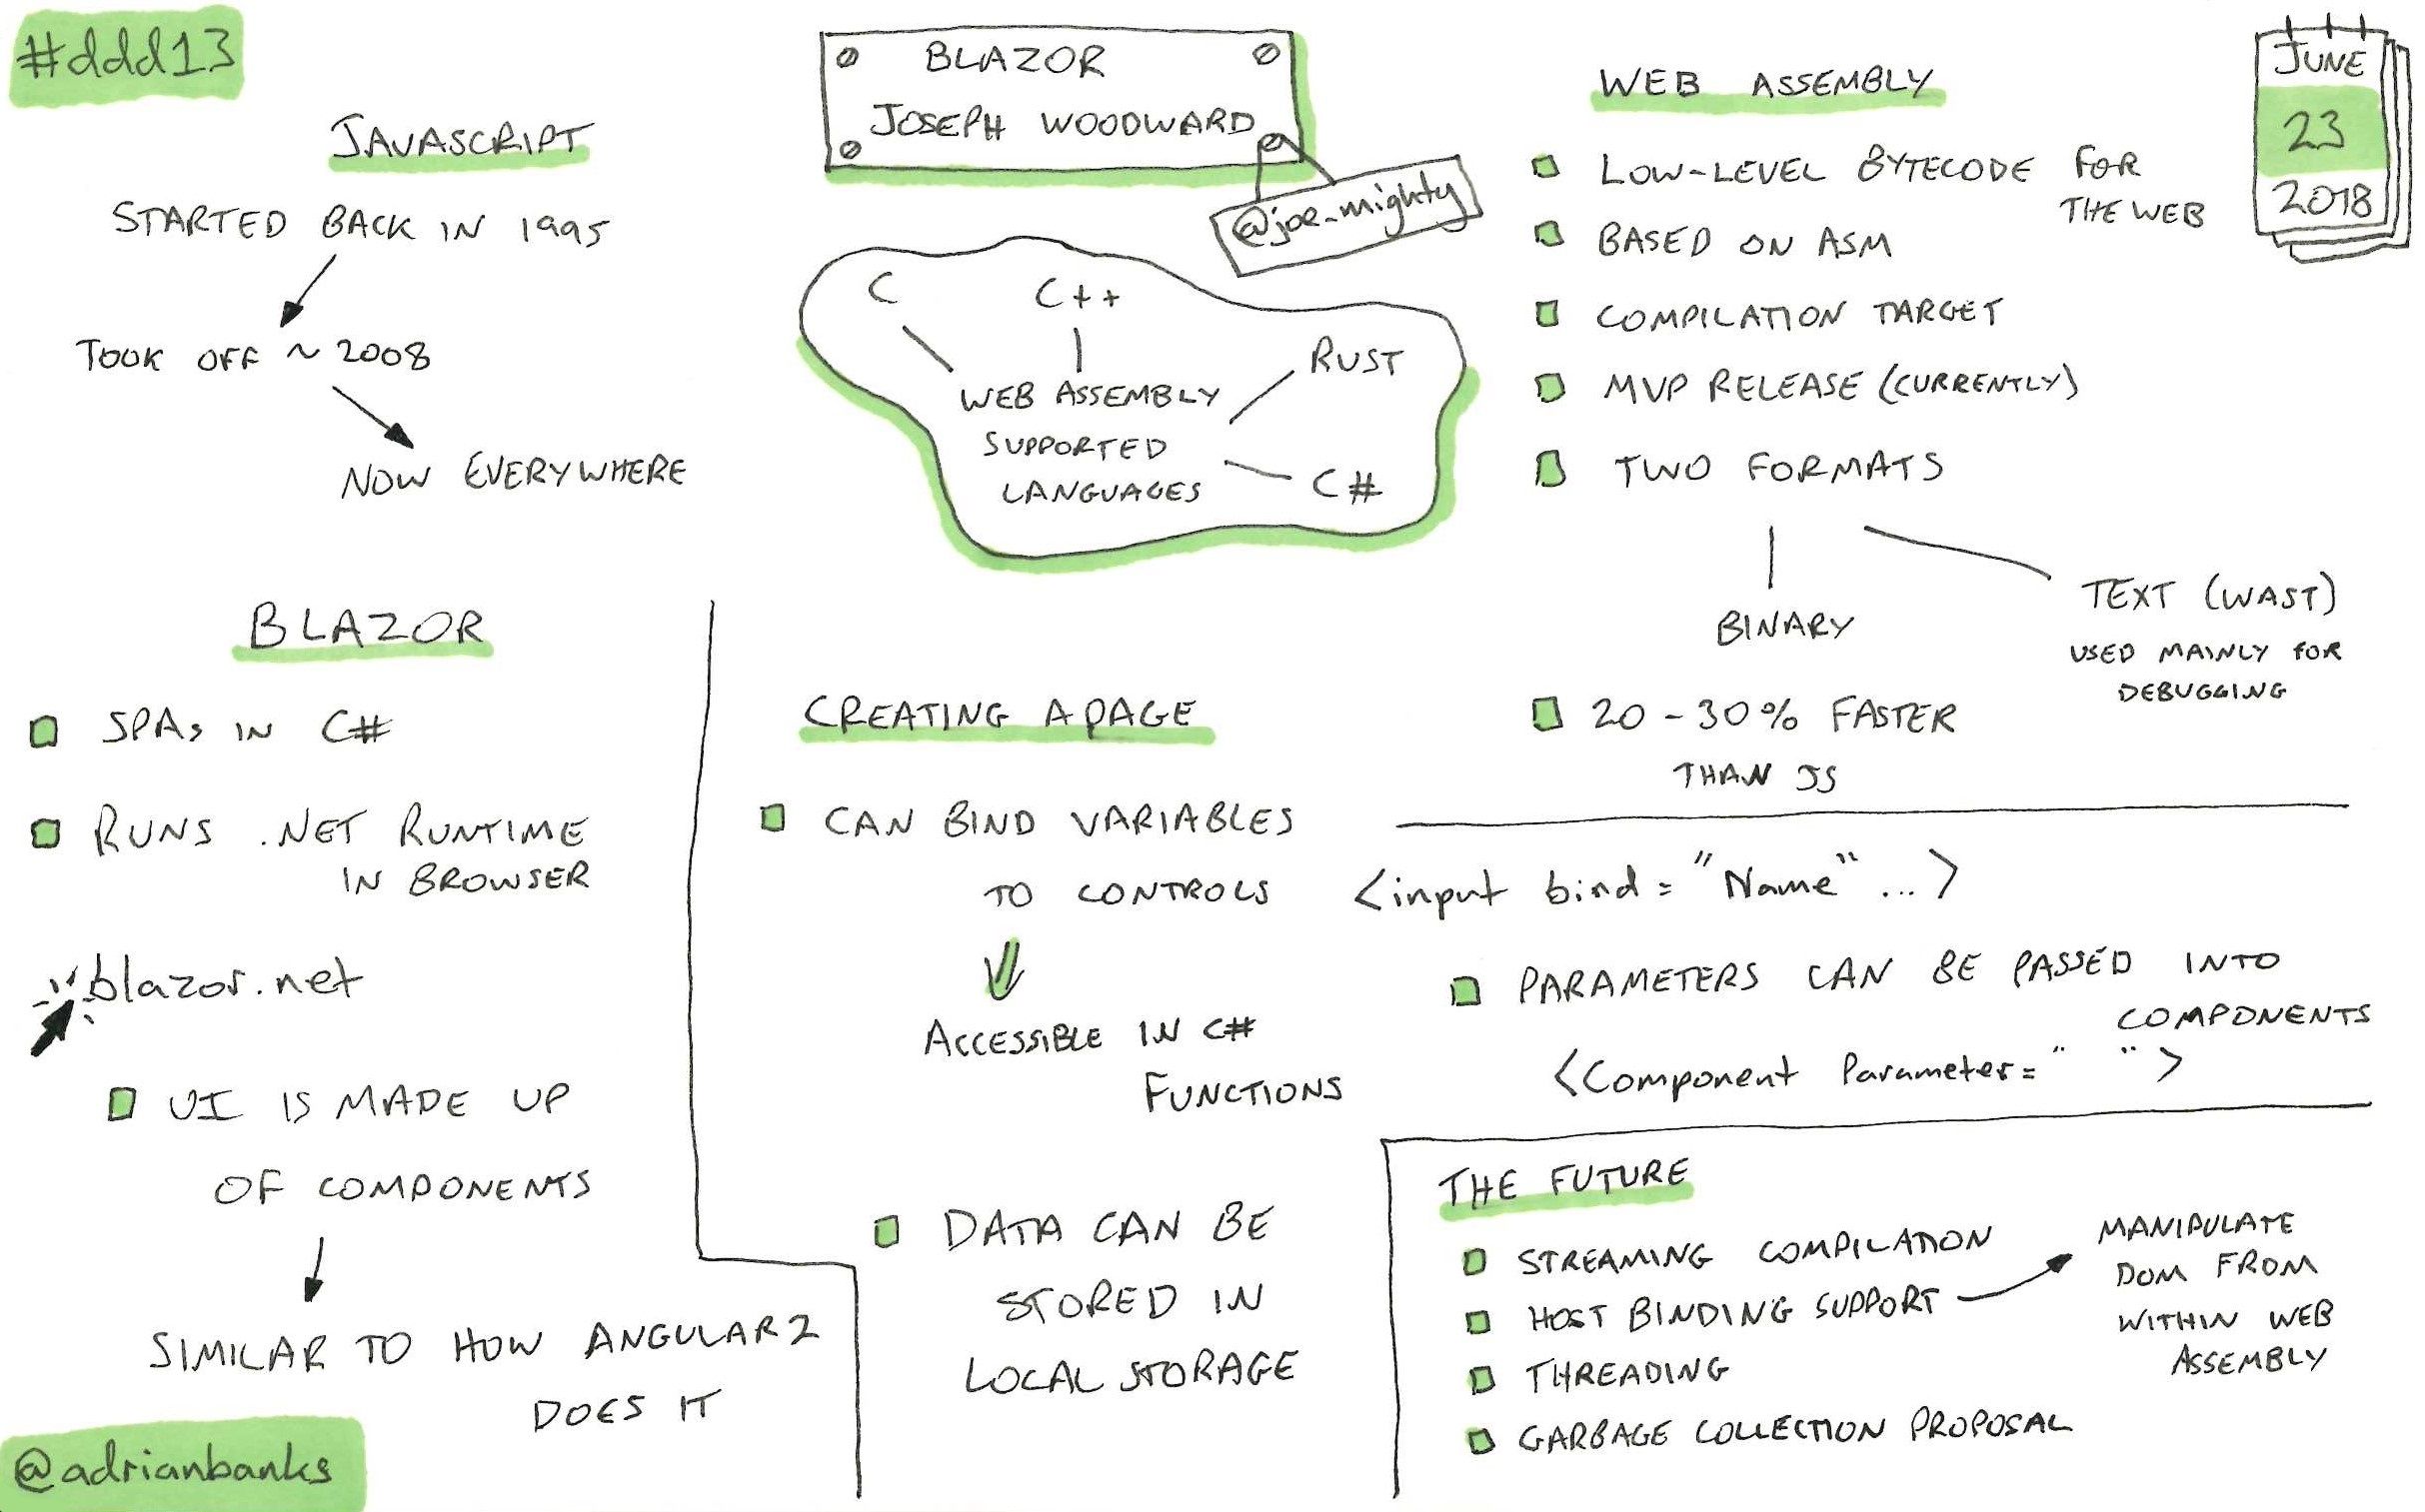 #ddd13
BLAZOR
JOSEPH WOODWARD
@joe_mighty
JUNE
23
2018
JAVASCRIPT
STARTED BACK IN 1995
TOOK OFF ~ 2008
NOW EVERYWHERE
C
C++
RUST
C#
WEB ASSEMBLY
SUPPORTED
LANGUAGES
WEB ASSEMBLY
LOW-LEVEL BYTECODE FOR
THE WEB
BASED ON ASM
COMPILATION TARGET
MVP RELEASE (CURRENTLY)
TWO FORMATS
BINARY
TEXT (WAST)
USED MAINLY FOR
DEBUGGING
20-30% FASTER
THAN JS
BLAZOR
SPAs IN C#
RUNS .NET RUNTIME
IN BROWSER
blazor.net
UI IS MADE UP
OF COMPONENTS
SIMILAR TO HOW ANGULAR2
DOES IT
CREATING A PAGE
CAN BIND VARIABLES
TO CONTROLS
<input bind="Name"...>
ACCESSIBLE IN C#
FUNCTIONS
PARAMETERS CAN BE PASSED INTO
COMPONENTS
<Component Parameter=" ">
DATA CAN BE
STORED IN
LOCAL STORAGE
THE FUTURE
STREAMING COMPILATION
HOST BINDING SUPPORT
MANIPULATE
DOM FROM
WITHIN WEB
ASSEMBLY
THREADING
GARBAGE COLLECTION PROPOSAL
@adrianbanks